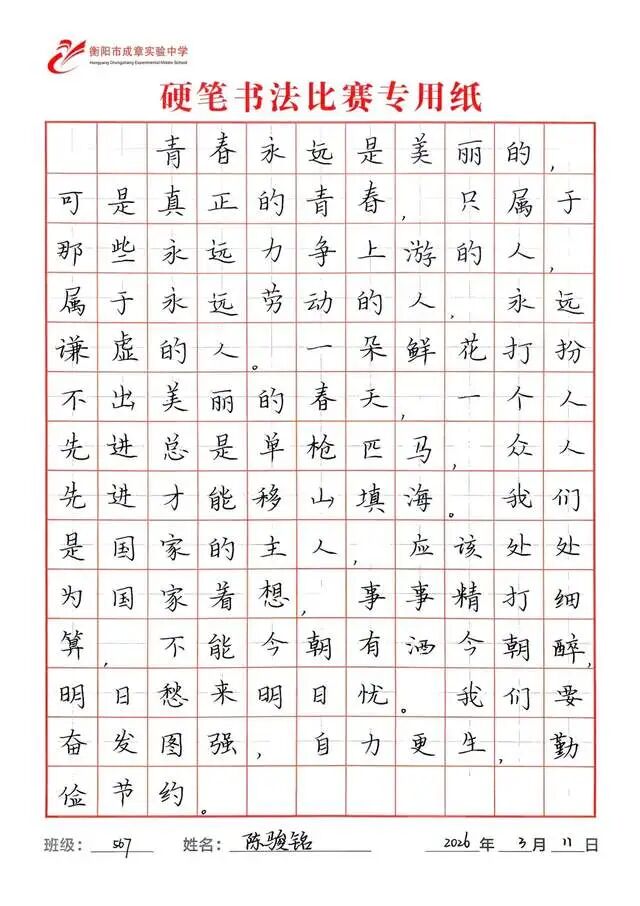 衡阳市成章实验中学
Hengyang Chengzhang Experimental Middle School
硬笔书法比赛专用纸
青春永远是美丽的,
可是真正的青春,只属于
那些永远力争上游的人,
属于永远劳动的人,永远
谦虚的人。一朵鲜花打扮
不出美丽的春天,一个人
先进总是单枪匹马,众人
先进才能移山填海。我们
是国家的主人,应该处处
为国家着想,事事精打细
算,不能今朝有酒今朝醉,
明日愁来明日忧。我们要
奋发图强,自力更生,勤
俭节约。
班级: 567 姓名: 陈骏铭 2026 年 3 月 11 日